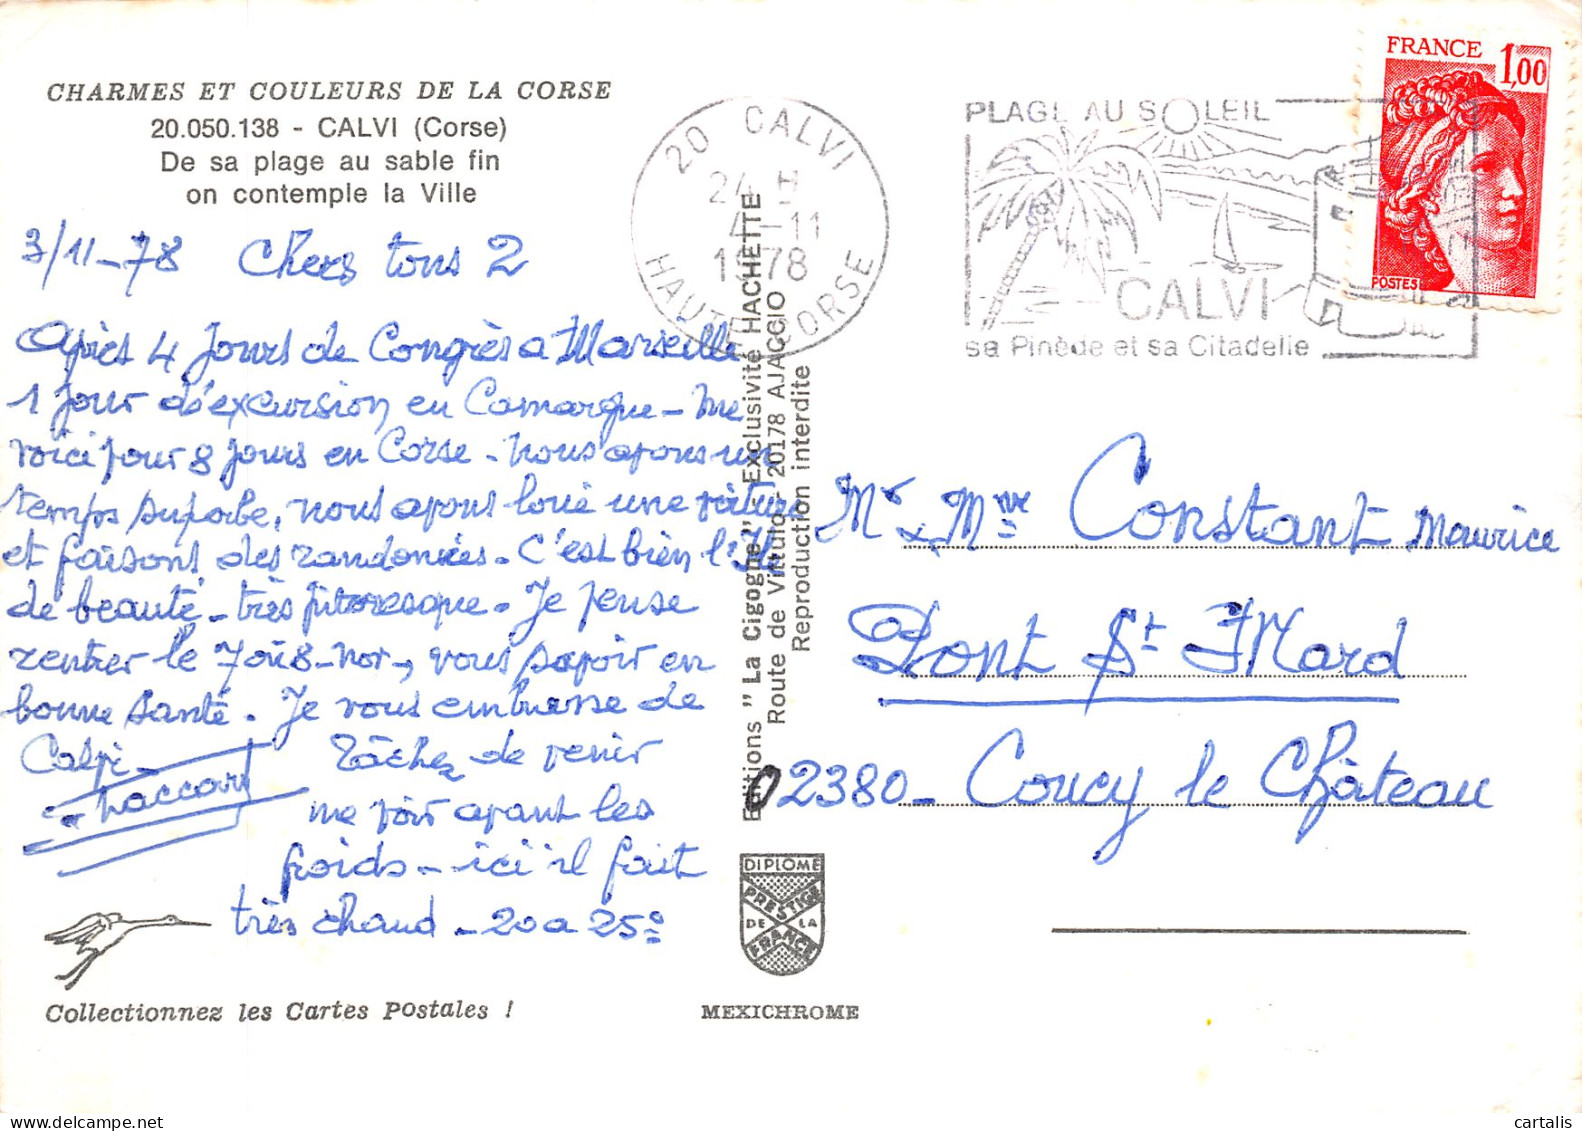 CHARMES ET COULEURS DE LA CORSE
20.050.138 - CALVI (Corse)
De sa plage au sable fin
on contemple la Ville
3/11-78 Chers tous 2
Après 4 jours de Congrès a Marseille
1 jour d'excursion en Camargue - me
voici pour 8 jours en Corse - nous avons un
temps superbe, nous avons loué une voiture
et faisons des randonnées. C'est bien l'Ile
de beauté - très pittoresque. Je pense
rentrer le 7 où 8 - nov, vous savoir en
bonne santé. Je vous embrasse de
Calvi -
Tâchez de venir
me voir avant les
froids - ici il fait
très chaud - 20 a 25°
Collectionnez les Cartes Postales !
20 CALVI
24 H
4 -11
1978
HAUTE CORSE
Editions " La Cigogne " - Exclusivité HACHETTE
Route de Vittulo - 20178 AJACCIO
Reproduction interdite
DIPLOME
PRESTIGE
DE LA
FRANCE
MEXICHROME
PLAGE AU SOLEIL
CALVI
sa Pinède et sa Citadelle
FRANCE 1,00
POSTES
Mr & Mme Constant Maurice
Pont St Mard
02380 - Coucy le Château
cartalis